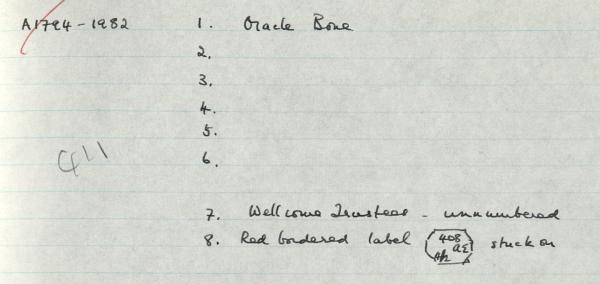 A1794-1982 1. Oracle Bone
2.
3.
4.
5.
411 6.
7. Wellcome Trustees - unnumbered
8. Red bordered label 408 stuck on